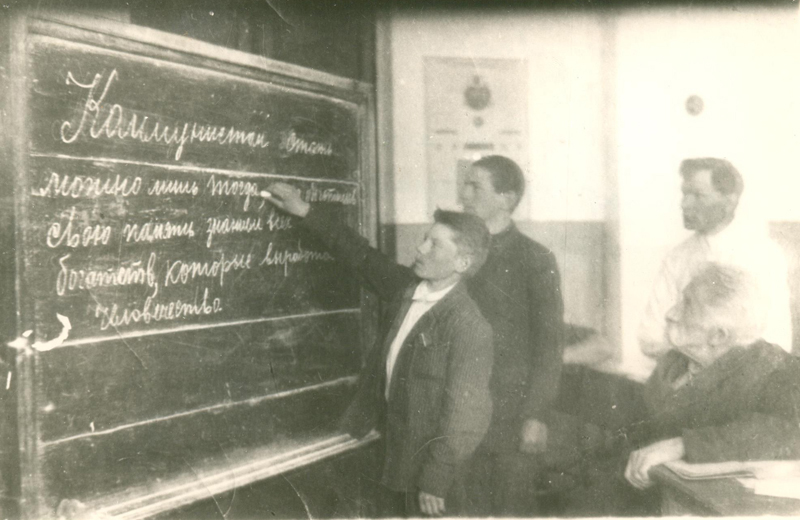 Коммунистом стать
можно лишь тогда,
свою память знанием всех
богатств, которые выработа
человечество.